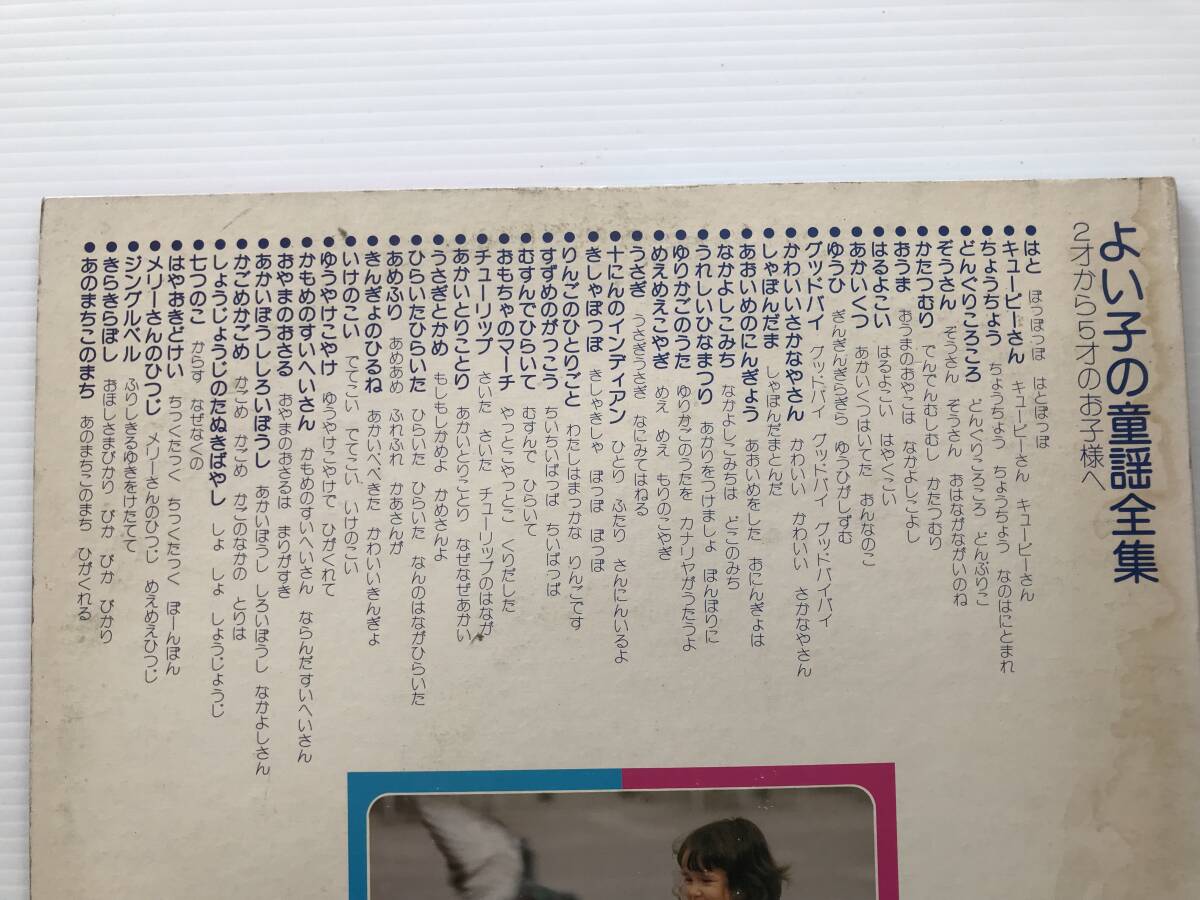 よい子の童謡全集
2才から5才のお子様へ
●はと ぽっぽっぽ はとぽっぽ
●キューピーさん キューピーさん キューピーさん
●ちょうちょう ちょうちょう ちょうちょう なのはにとまれ
●どんぐりころころ どんぐりころころ どんぶりこ
●ぞうさん ぞうさん ぞうさん おはながながいのね
●かたつむり でんでんむしむし かたつむり
●おうま おうまのおやこは なかよしこよし
●はるよこい はるよこい はやくこい
●あかいくつ あかいくつはいてた おんなのこ
●ゆうひ ぎんぎんぎらぎら ゆうひがしずむ
●グッドバイ グッドバイ グッドバイ グッドバイバイ
●かわいいさかなやさん かわいい かわいい さかなやさん
●しゃぼんだま しゃぼんだまとんだ
●あおいめのにんぎょう あおいめをした おにんぎょは
●なかよしこみち なかよしこみちは どこのみち
●うれしいひなまつり あかりをつけましょ ぼんぼりに
●ゆりかごのうた ゆりかごのうたを カナリヤがうたうよ
●めえめえこやぎ めえ めえ もりのこやぎ
●うさぎ うさぎうさぎ なにみてはねる
●十にんのインディアン ひとり ふたり さんにんいるよ
●きしゃぽっぽ きしゃきしゃ ぽっぽ ぽっぽ
●りんごのひとりごと わたしはまっかな りんごです
●すずめのがっこう ちいちいぱっぱ ちいぱっぱ
●むすんでひらいて むすんで ひらいて
●おもちゃのマーチ やっとこやっとこ くりだした
●チューリップ さいた さいた チューリップのはなが
●あかいとりことり あかいとりことり なぜなぜあかい
●うさぎとかめ もしもしかめよ かめさんよ
●ひらいたひらいた ひらいた ひらいた なんのはながひらいた
●あめふり あめあめ ふれふれ かあさんが
●きんぎょのひるね あかいべべきた かわいいきんぎょ
●いけのこい でてこい でてこい いけのこい
●ゆうやけこやけ ゆうやけこやけで ひがくれて
●かもめのすいへいさん かもめのすいへいさん ならんだすいへいさん
●おやまのおさる おやまのおさるは まりがすき
●あかいぼうししろいぼうし あかいぼうし しろいぼうし なかよしさん
●かごめかごめ かごめ かごめ かごのなかの とりは
●しょうじょうじのたぬきばやし しょ しょ しょうじょうじ
●七つのこ からす なぜなくの
●はやおきどけい ちっくたっく ちっくたっく ぼーんぼん
●メリーさんのひつじ メリーさんのひつじ めえめえひつじ
●ジングルベル ふりしきるゆきをけたてて
●きらきらぼし おほしさまぴかり ぴか ぴか ぴかり
●あのまちこのまち あのまちこのまち ひがくれる